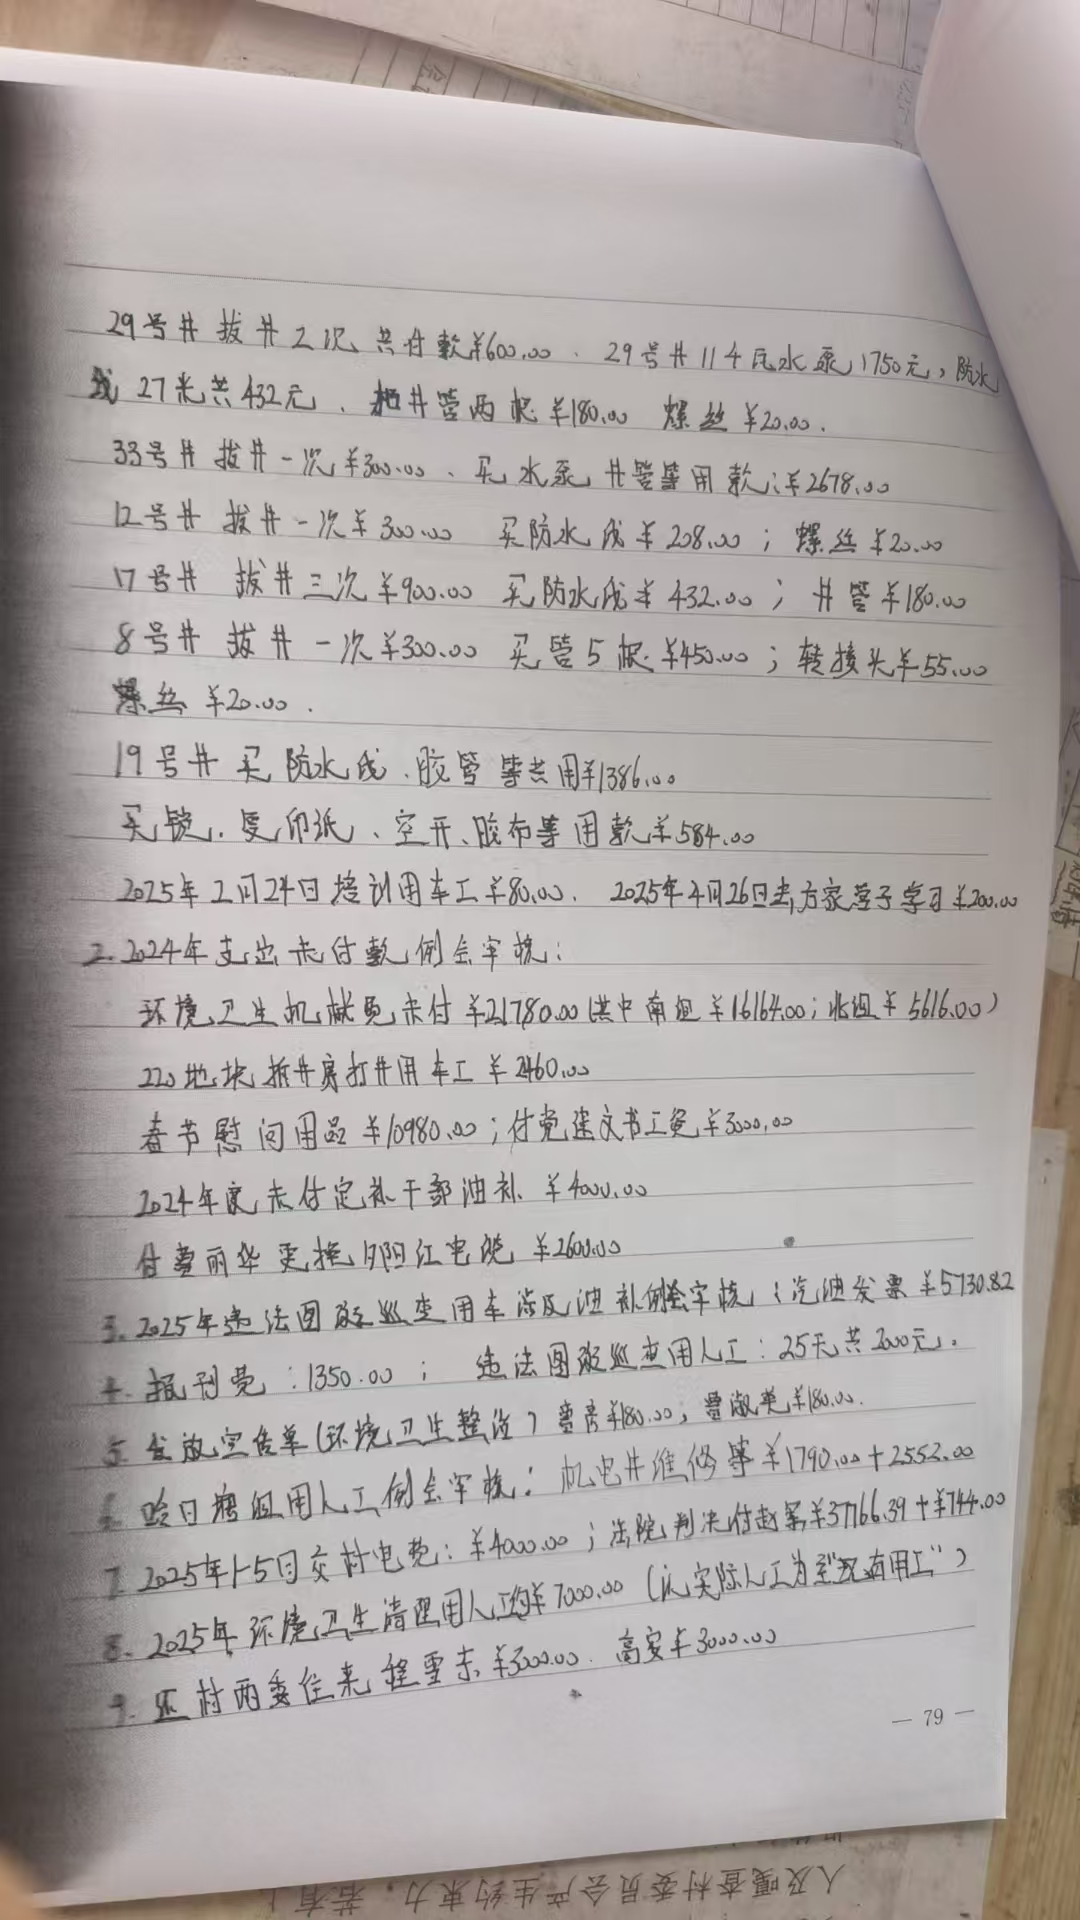 29号井拔井2次共付款¥600.00、29号井11千瓦水泵1750元，防水
线27米共432元、井管两根¥180.00 螺丝¥20.00.
33号井拔井一次¥300.00、买水泵井管等用款：¥2678.00
12号井拔井一次¥300.00 买防水线¥208.00；螺丝¥20.00
17号井 拔井三次¥900.00 买防水线¥432.00；井管¥180.00
8号井 拔井一次¥300.00 买管5根¥450.00；转接头¥55.00
螺丝¥20.00.
19号井买防水线、胶管等共用¥1386.00
买锁、复印纸、空开、胶布等用款¥584.00
2025年2月24日培训用车工¥80.00. 2025年4月26日去方家营子学习¥200.00
2.2024年支出未付款例会审核：
环境卫生机械费未付¥21780.00（其中南组¥16164.00；北组¥5616.00）
220地块拆井房打井用车工¥2460.00
春节慰问用品¥10980.00；付党建文书工资¥3000.00
2024年度未付定补干部油补 ¥4000.00
付 丽华更换夕阳红电缆¥2600.00
3.2025年违法图斑巡查用车涉及油补例会审核（汽油发票¥5730.82
4.报刊费：1350.00； 违法图斑巡查用人工：25天共2000元.
5.发放宣传单（环境卫生整治） ¥180.00， ¥180.00.
6 哈日 组用人工例会审核：机电井维修等¥1790.00+2552.00
7.2025年1-5月交村电费：¥4000.00；法院判决付赵 ¥37766.39+¥744.00
8.2025年环境卫生清理用人工约¥7000.00（以实际人工为 有用工"）
9.还村两委往来程雪东¥3000.00. 高安¥3000.00
— 79 —
人及嘎查村委员会产生约束力，若有